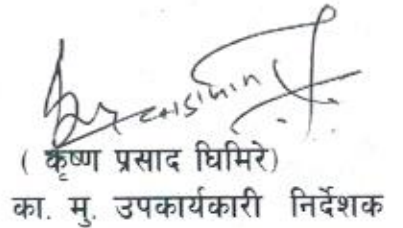 ( कृष्ण प्रसाद घिमिरे)
का. मु. उपकार्यकारी निर्देशक